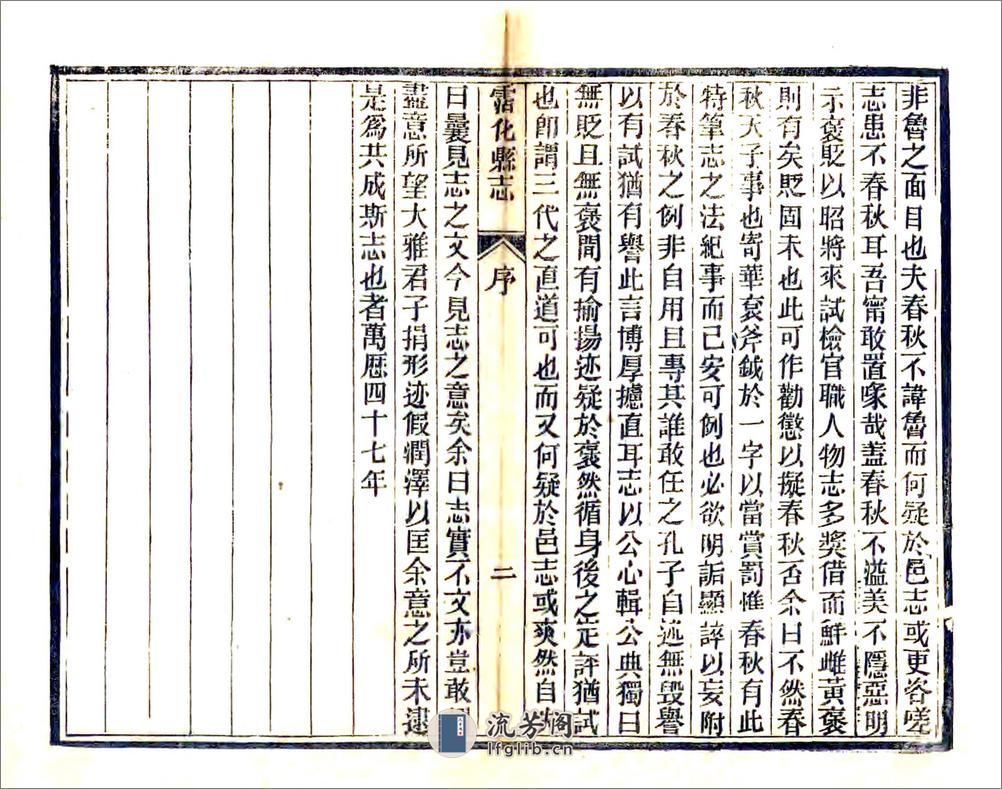 非魯之面目也夫春秋不諱魯而何疑於邑志或更咨嗟
志患不春秋耳吾甯敢置喙哉蓋春秋不溢美不隱惡明
示褒貶以昭將來試檢官職人物志多獎借而鮮雌黃褒
則有矣貶固未也此可作勸懲以擬春秋否余曰不然春
秋天子事也寄華袞斧鉞於一字以當賞罰惟春秋有此
特筆志之法紀事而已安可例也必欲明詬顯誶以妄附
於春秋之例非自用且專其誰敢任之孔子自述無毀譽
以有試猶有譽此言博厚攄直耳志以公心輯公典獨曰
無貶且無褒間有揄揚迹疑於褒然循身後之定評猶試
也卽謂三代之直道可也而又何疑於邑志或爽然自
霑化縣志
序
二
曰曩見志之文今見志之意矣余曰志實不文亦豈敢
盡意所望大雅君子捐形迹假潤澤以匡余意之所未逮
是爲共成斯志也者萬歷四十七年
流芳閣
lfglib.cn